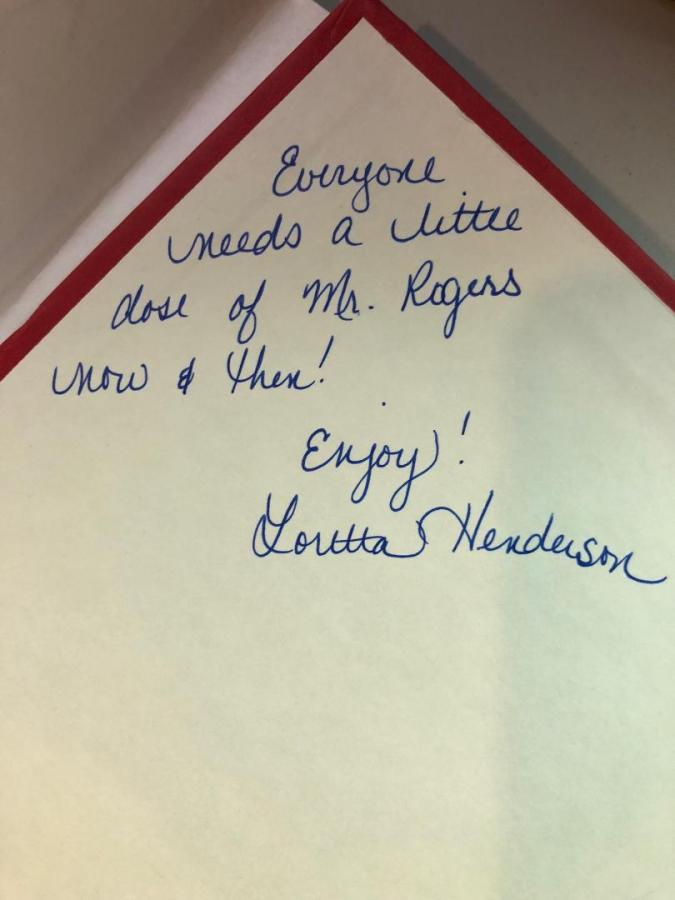 Everyone
needs a little
dose of Mr. Rogers
now & then!
Enjoy!
Loretta Henderson